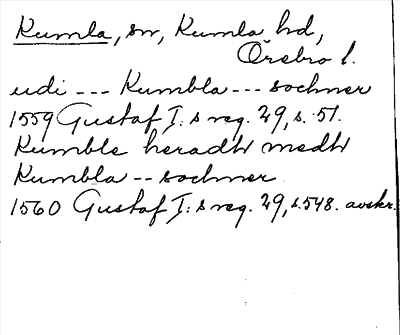 Kumla, sn, Kumla hd,
Örebro l.
udi --- Kumbla --- sochner
1559 Gustaf I:s reg. 29, s. 51.
Kumble heradh medh
Kumbla -- sochner
1560 Gustaf I:s reg. 29, s. 548. avskr.